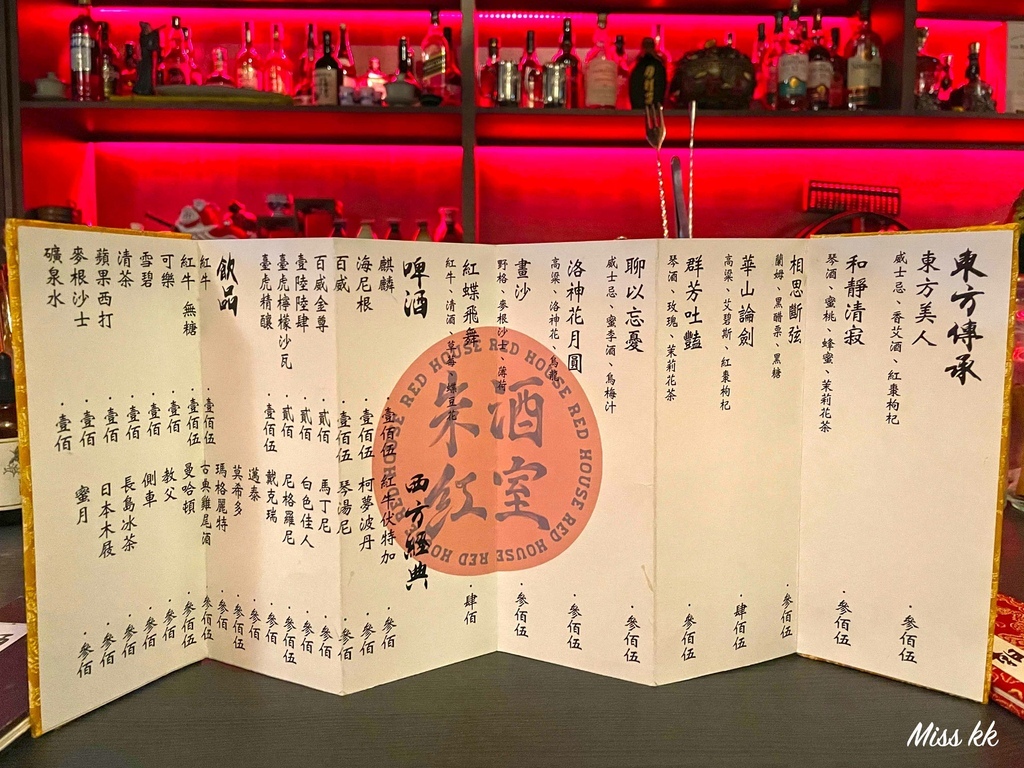 東方傳承
東方美人
威士忌、香艾酒、紅棗枸杞
·參佰伍
和靜清寂
琴酒、蜜桃、蜂蜜、茉莉花茶
·參佰伍
相思斷弦
蘭姆、黑醋栗、黑糖
·參佰伍
華山論劍
高粱、艾碧斯、紅棗枸杞
·肆佰伍
群芳吐豔
琴酒、玫瑰、茉莉花茶
·參佰伍
聊以忘憂
威士忌、蜜李酒、烏梅汁
·參佰伍
洛神花月圓
高粱、洛神花、烏龍
·參佰伍
畫沙
野格、麥根沙士、薄荷
·參佰伍
紅蝶飛舞
紅牛、清酒、草莓、蝶豆花
·肆佰
啤酒
麒麟·壹佰伍
海尼根·壹佰伍
百威·壹佰伍
百威金尊·貳佰
壹陸陸肆·貳佰
臺虎檸檬沙瓦·貳佰
臺虎精釀·壹佰伍
飲品
紅牛·壹佰伍
紅牛 無糖·壹佰伍
可樂·壹佰
雪碧·壹佰
清茶·壹佰
蘋果西打·壹佰
麥根沙士·壹佰
礦泉水·壹佰
西方經典
紅牛伏特加·參佰
柯夢波丹·參佰
琴湯尼·參佰
馬丁尼·參佰
白色佳人·參佰
尼格羅尼·參佰伍
戴克瑞·參佰
邁泰·參佰
莫希多·參佰伍
瑪格麗特·參佰
古典雞尾酒·參佰伍
曼哈頓·參佰伍
教父·參佰
側車·參佰
長島冰茶·參佰
日本木屐·參佰
蜜月·參佰
朱紅酒室
RED HOUSE RED HOUSE RED HOUSE RED HOUSE RED HOUSE RED HOUSE
Miss kk